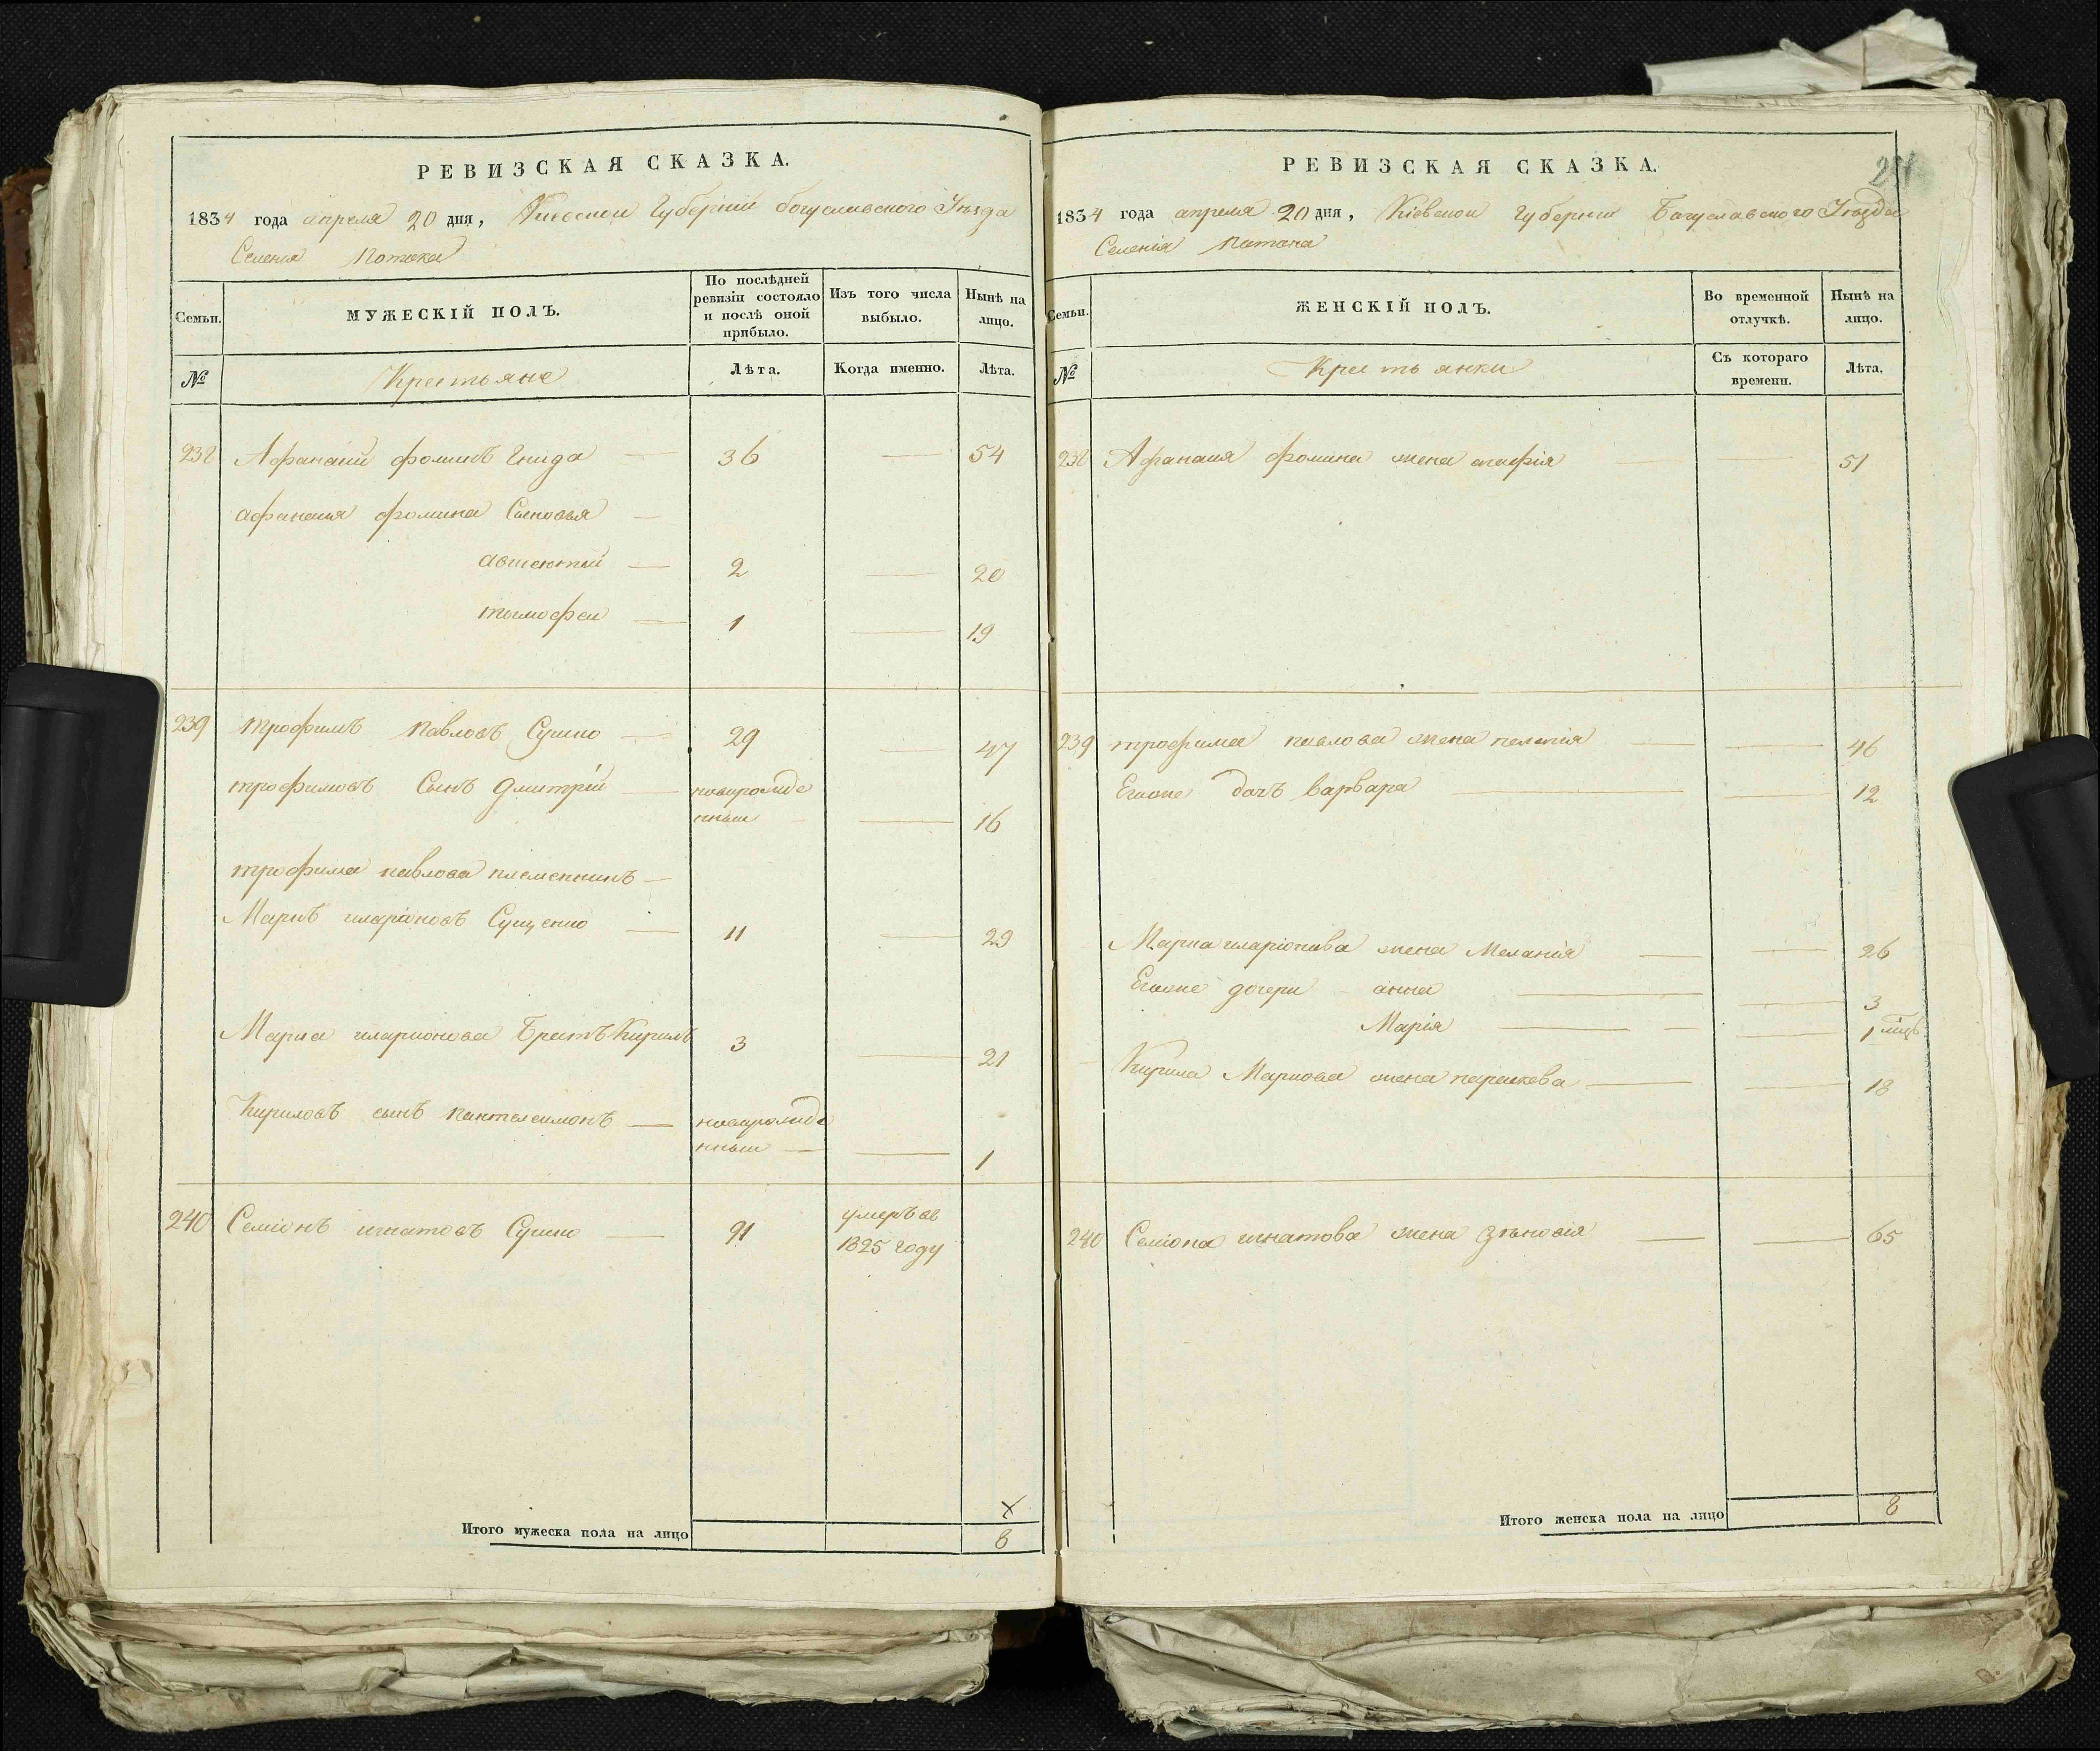 РЕВИЗСКАЯ СКАЗКА.
1834 года апреля 20 дня, Киевской Губерний богуславского Уѣзда
Селения Потока
Семьи.
МУЖЕСКІЙ ПОЛЪ.
По послѣдней ревизіи состояло и послѣ оной прибыло.
Изъ того числа выбыло.
Нынѣ на лицо.
№
Крестьяне
Лѣта.
Когда именно.
Лѣта.
238 Афанасий фоминъ Гнида — 36 — 54
афанасия фомина Сыновья —
авксентий — 2 — 20
тымофей — 1 — 19
239 трофимъ Павловъ Сушко — 29 — 47
трофимовъ Сынъ Дмитрій — новорожде
нный — 16
трофима павлова племенникъ —
Маркъ иларіоновъ Сущенко — 11 — 29
Марка иларионова Братъ Кирилъ 3 — 21
Кириловъ сынъ пантелеимонъ — новорожде
нный — — 1
240 Семіонъ игнатовъ Сушко — 91 умеръ въ
1825 году
х
Итого мужеска пола на лицо 8
РЕВИЗСКАЯ СКАЗКА.
1834 года апреля 20 дня, Кіевской губернии Богуславского Уѣзда
Селенія Потока
Семьи.
ЖЕНСКІЙ ПОЛЪ.
Во временной отлучкѣ.
Нынѣ на лицо.
№
Крестьянки
Съ котораго времени.
Лѣта.
238 Афанасия фомина жена агафія — — 51
239 трофима павлова жена пелагія — — 46
Егоже дочъ варвара — — 12
Марка иларіонова жена Меланія — — 26
Егоже дочери - анна — — 3
Марія — — — 1 мѣць
Кирила Маркова жена параскева — — 18
240 Семіона игнатова жена зѣновія — — 65
Итого женска пола на лицо 8